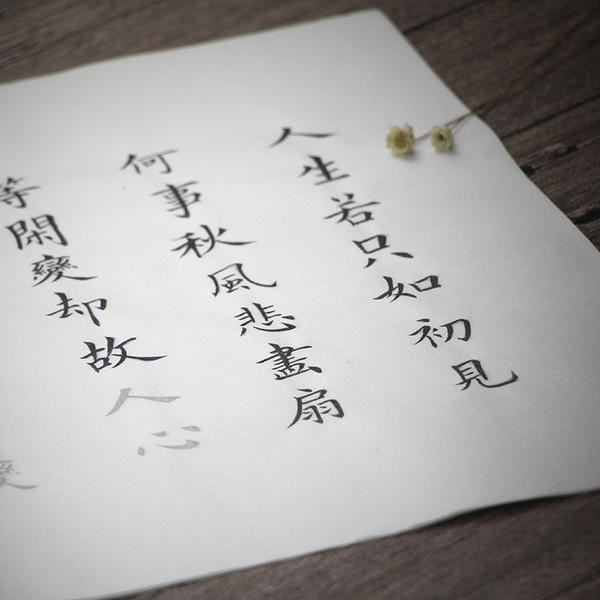 人生若只如初見
何事秋風悲畫扇
等閑變却故人心
變